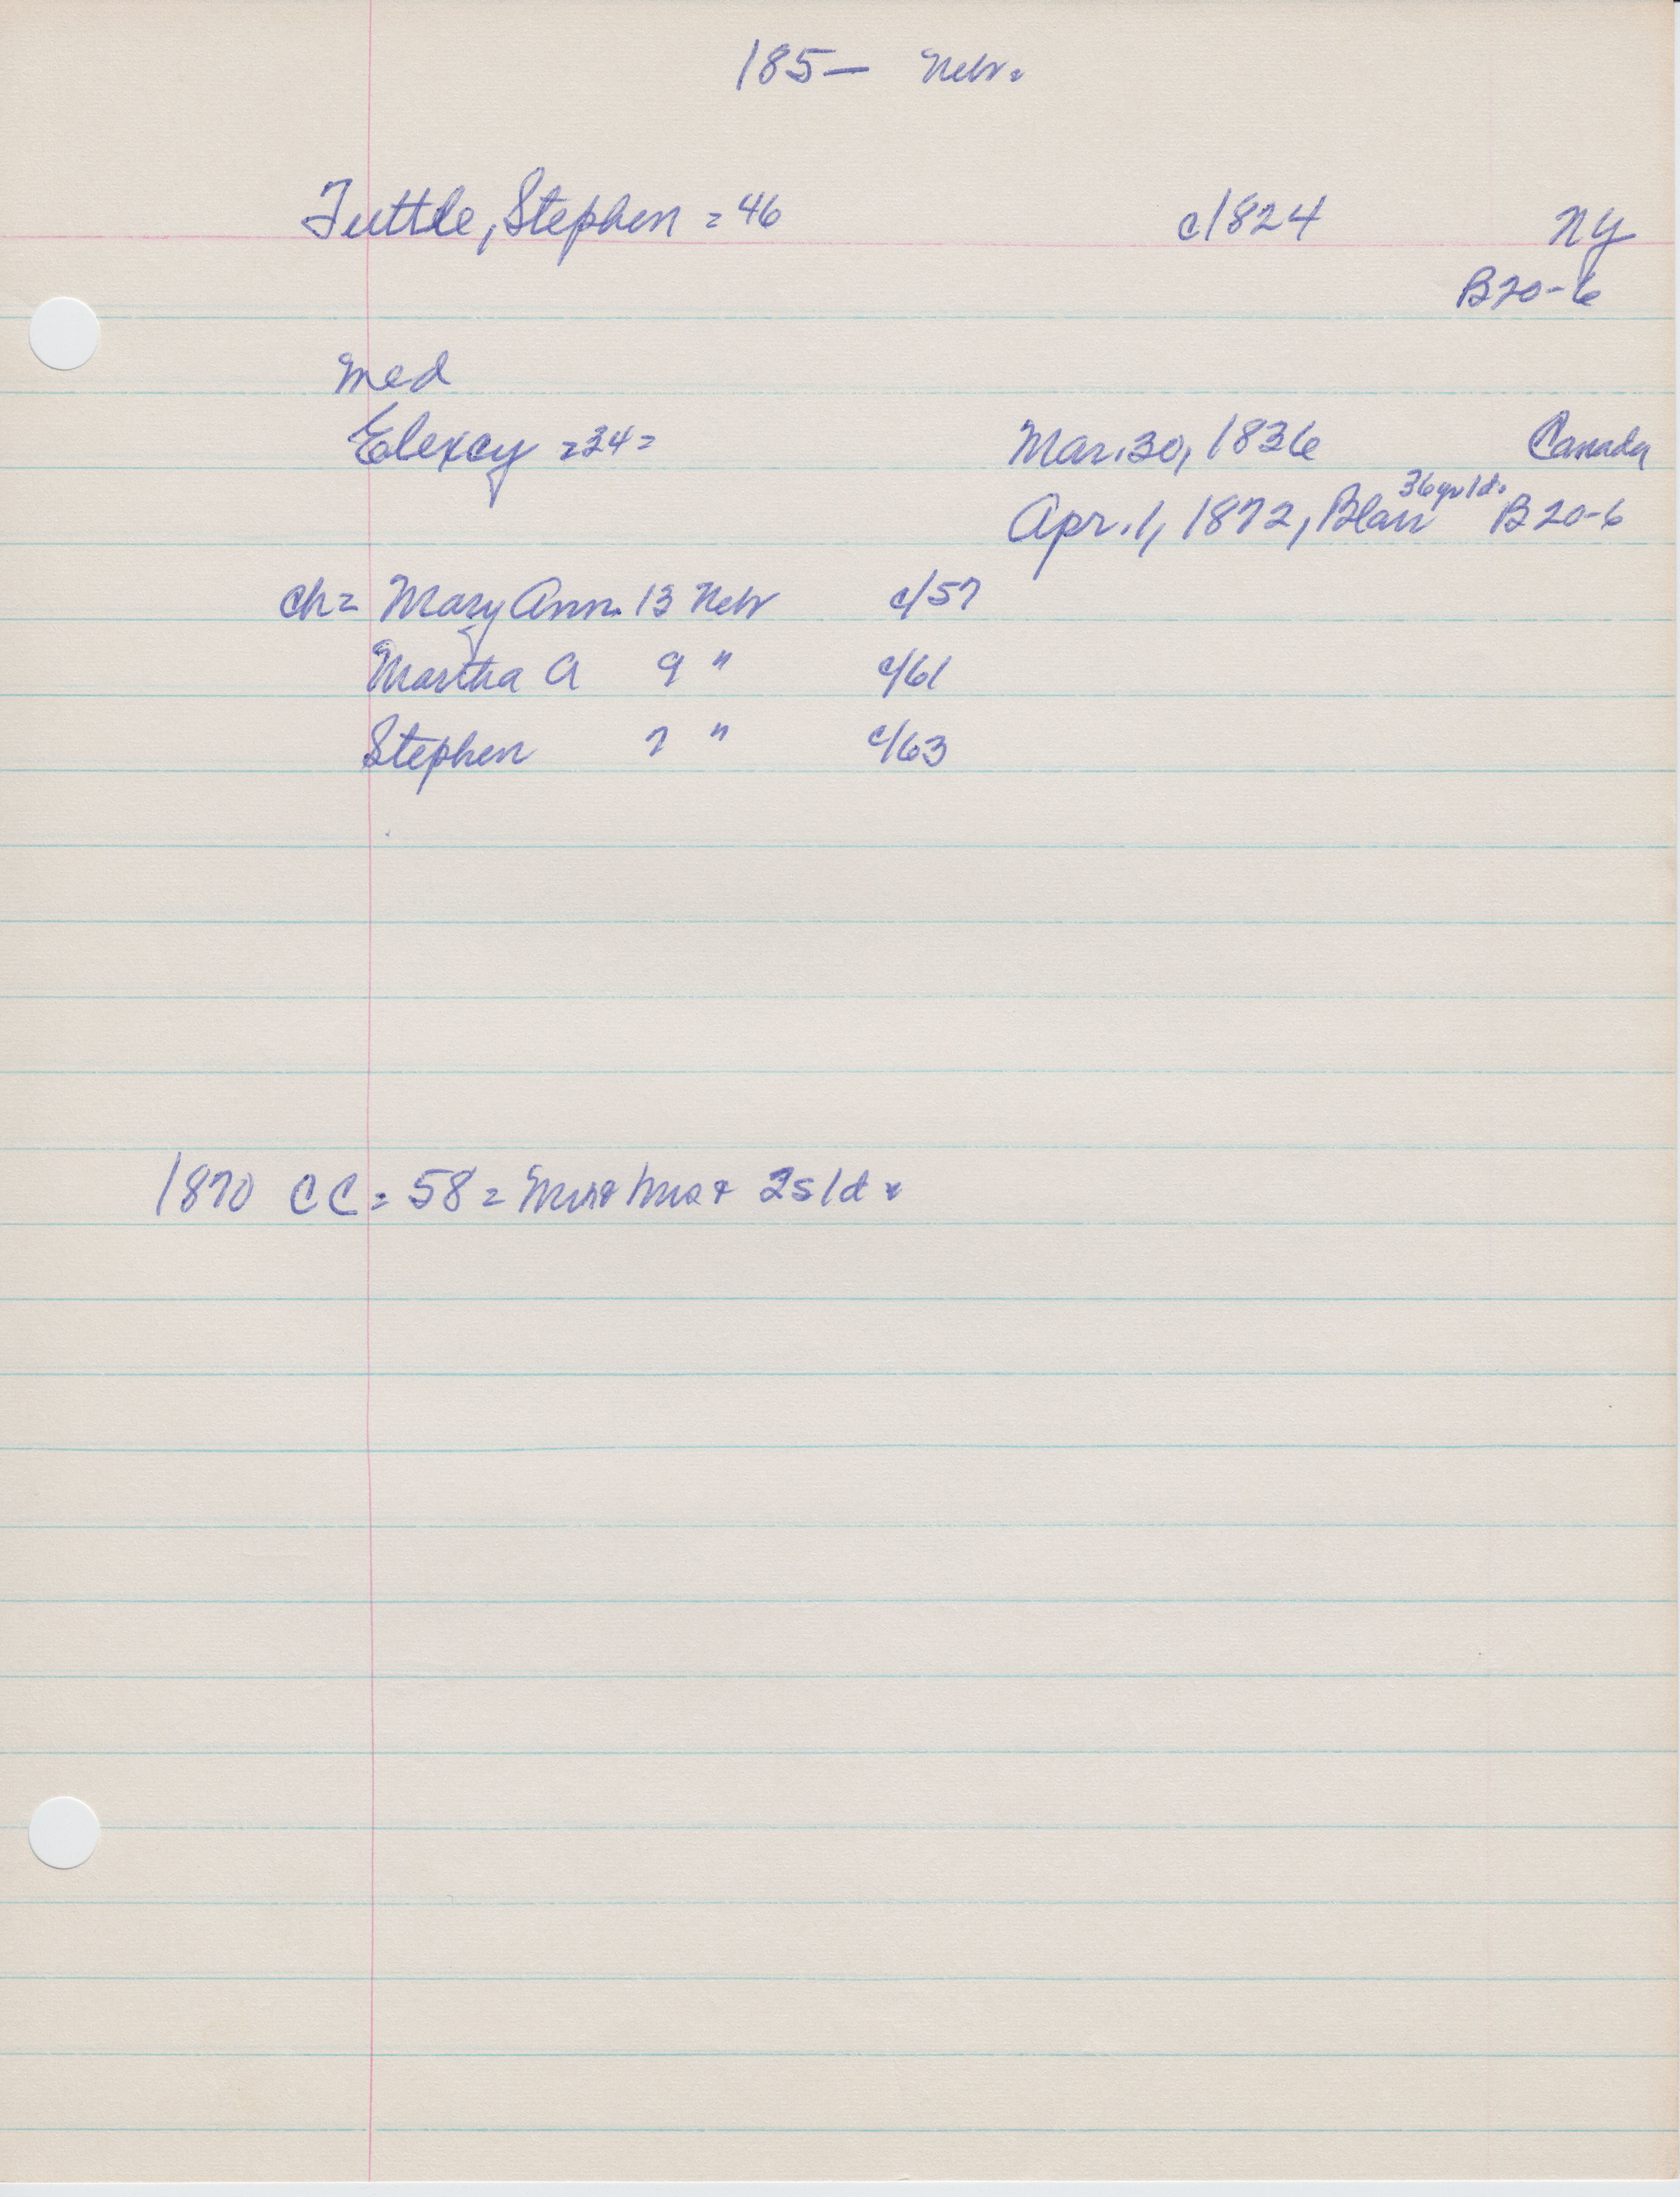 185— Nebr.
Tuttle, Stephen = 46 c/1824 NY
B20-6
Med
Elexcy =34= Mar. 30, 1836 Canada
36 yr old.
Apr. 1, 1872, Blair B20-6
ch= Mary Ann. 13 Nebr c/57
Martha A 9 " c/61
Stephen 7 " c/63
1870 CC = 58 =